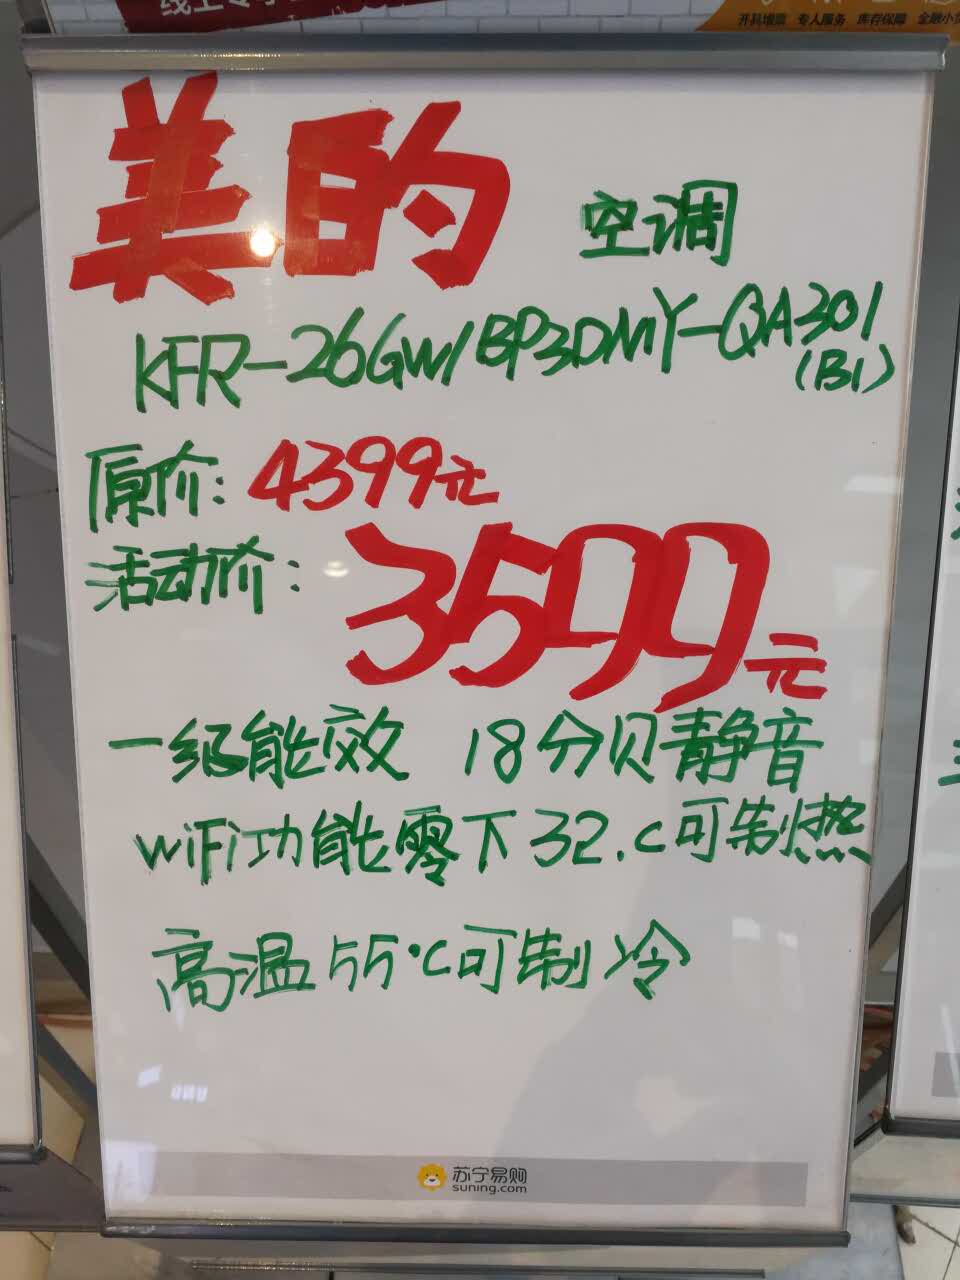 开具增票 专人服务 库存保障
美的 空调
KFR-26GW/BP3DNIY-QA301
(B1)
原价:4399元
活动价:3599元
一级能效 18分贝静音
WiFi功能零下32.C可制热
高温55℃可制冷
苏宁易购
suning.com